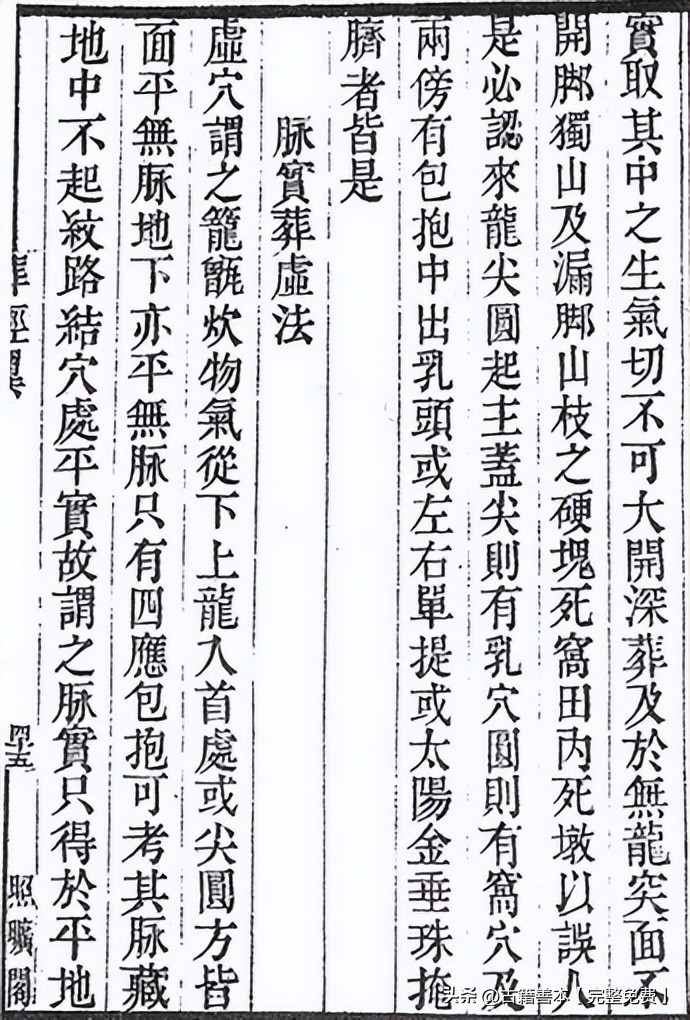 實取其中之生氣切不可大開深葬及於無龍突面不
開脚獨山及漏脚山枝之硬塊死窩田内死墩以誤人
是必認來龍尖圓起主蓋尖則有乳穴圓則有窩穴及
兩傍有包抱中出乳頭或左右單提或太陽金垂珠掩
臍者皆是
脉實葬虛法
虛穴謂之籠甑炊物氣從下上龍入首處或尖圓方皆
面平無脉地下亦平無脉只有四應包抱可考其脉藏
地中不起紋路結穴處平實故謂之脉實只得於平地
葬經翼
四十五
照曠閣
头条 @古籍善本【完整免费】